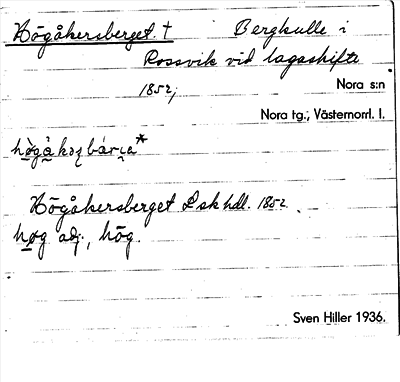 Högåkersberget. † Bergkulle i
Rossvik vid lagaskifte
1852; Nora s:n
Nora tg.; Västernorrl. l.
Högåkersberget Lsk hdl. 1852.
høg adj., hög.
Sven Hiller 1936.